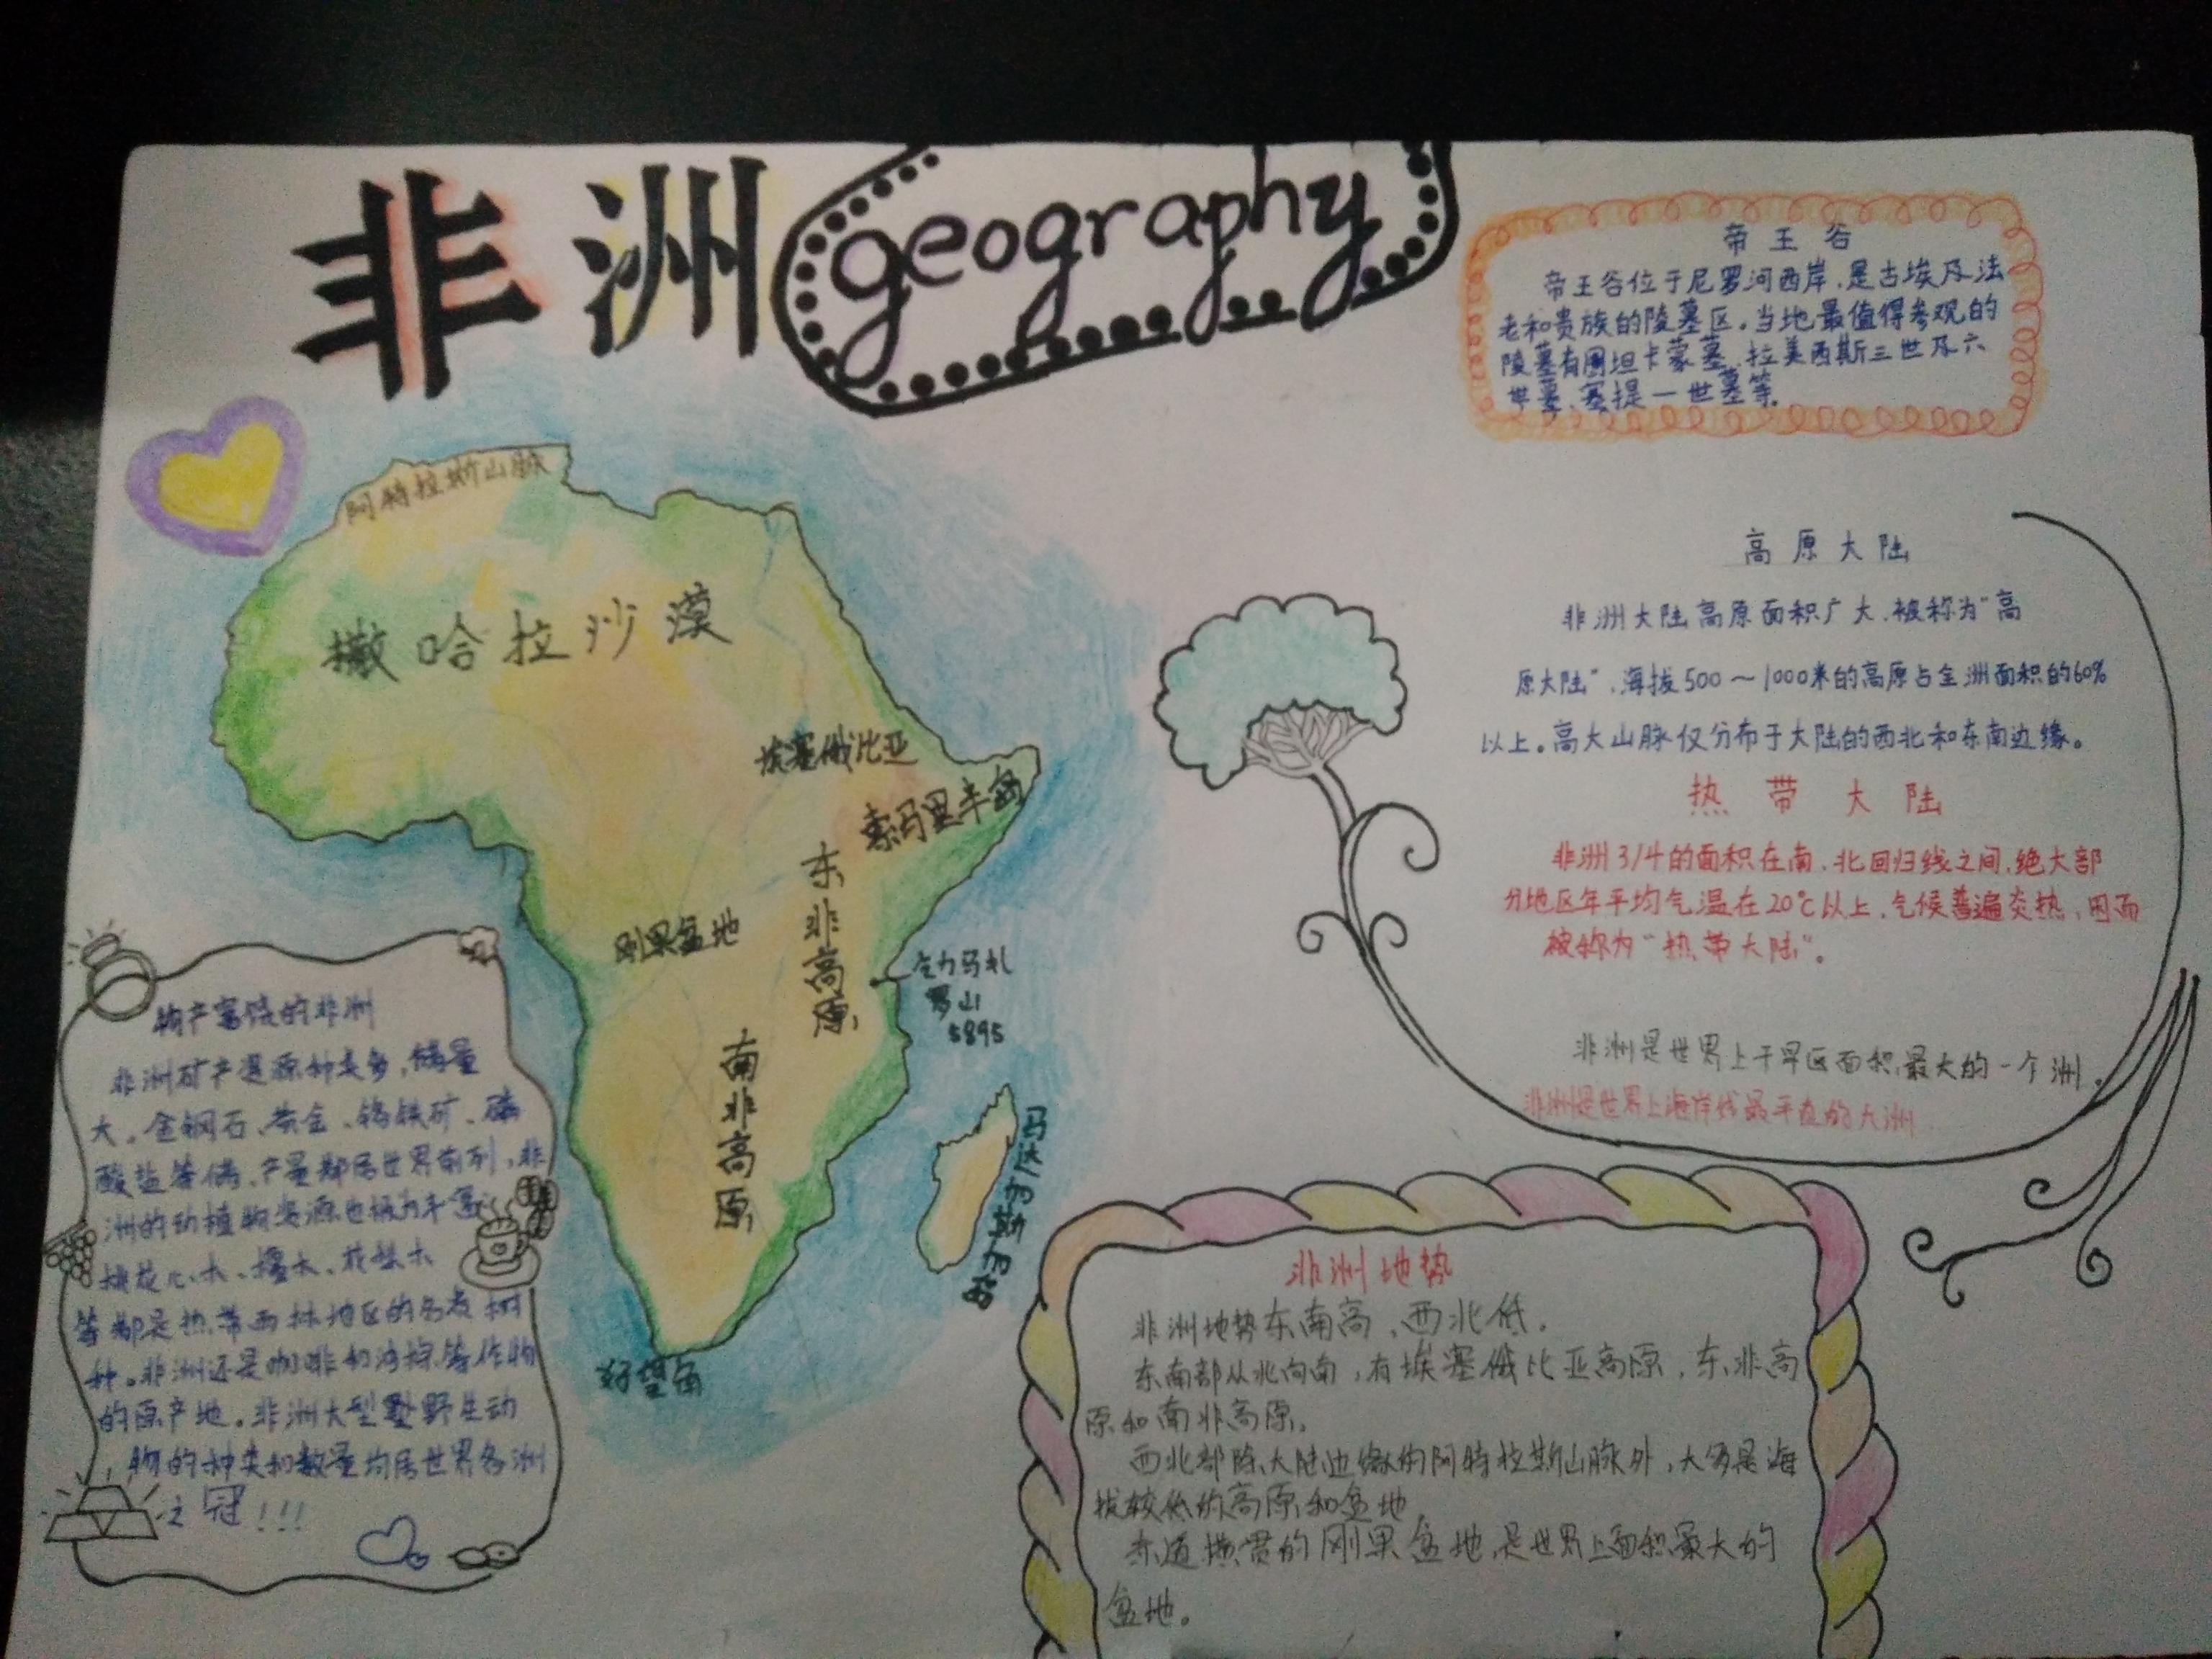 非洲 geography
帝王谷
帝王谷位于尼罗河西岸,是古埃及法
老和贵族的陵墓区。当地最值得参观的
陵墓有图坦卡蒙墓、拉美西斯三世及六
世墓、塞提一世墓等。
阿特拉斯山脉
撒哈拉沙漠
埃塞俄比亚
索马里半岛
东非高原
刚果盆地
乞力马扎
罗山
5895
南非高原
马达加斯加岛
好望角
高原大陆
非洲大陆高原面积广大,被称为"高
原大陆",海拔500~1000米的高原占全洲面积的60%
以上。高大山脉仅分布于大陆的西北和东南边缘。
热带大陆
非洲3/4的面积在南、北回归线之间,绝大部
分地区年平均气温在20℃以上,气候普遍炎热,因而
被称为"热带大陆"。
非洲是世界上干旱区面积最大的一个洲。
非洲是世界上海岸线最平直的大洲
物产富饶的非洲
非洲矿产资源种类多,储量
大。金钢石、黄金、铬铁矿、磷
酸盐等储、产量都居世界前列,非
洲的动植物资源也极为丰富,
桃花心木、檀木、花梨木
等都是热带雨林地区的名贵树
种。非洲还是咖啡和油棕等作物
的原产地。非洲大型野生动
物的种类和数量均居世界各洲
之冠!!!
非洲地势
非洲地势东南高,西北低。
东南部从北向南,有埃塞俄比亚高原,东非高
原和南非高原。
西北部除大陆边缘的阿特拉斯山脉外,大多是海
拔较低的高原和盆地
赤道横贯的刚果盆地,是世界上面积最大的
盆地。